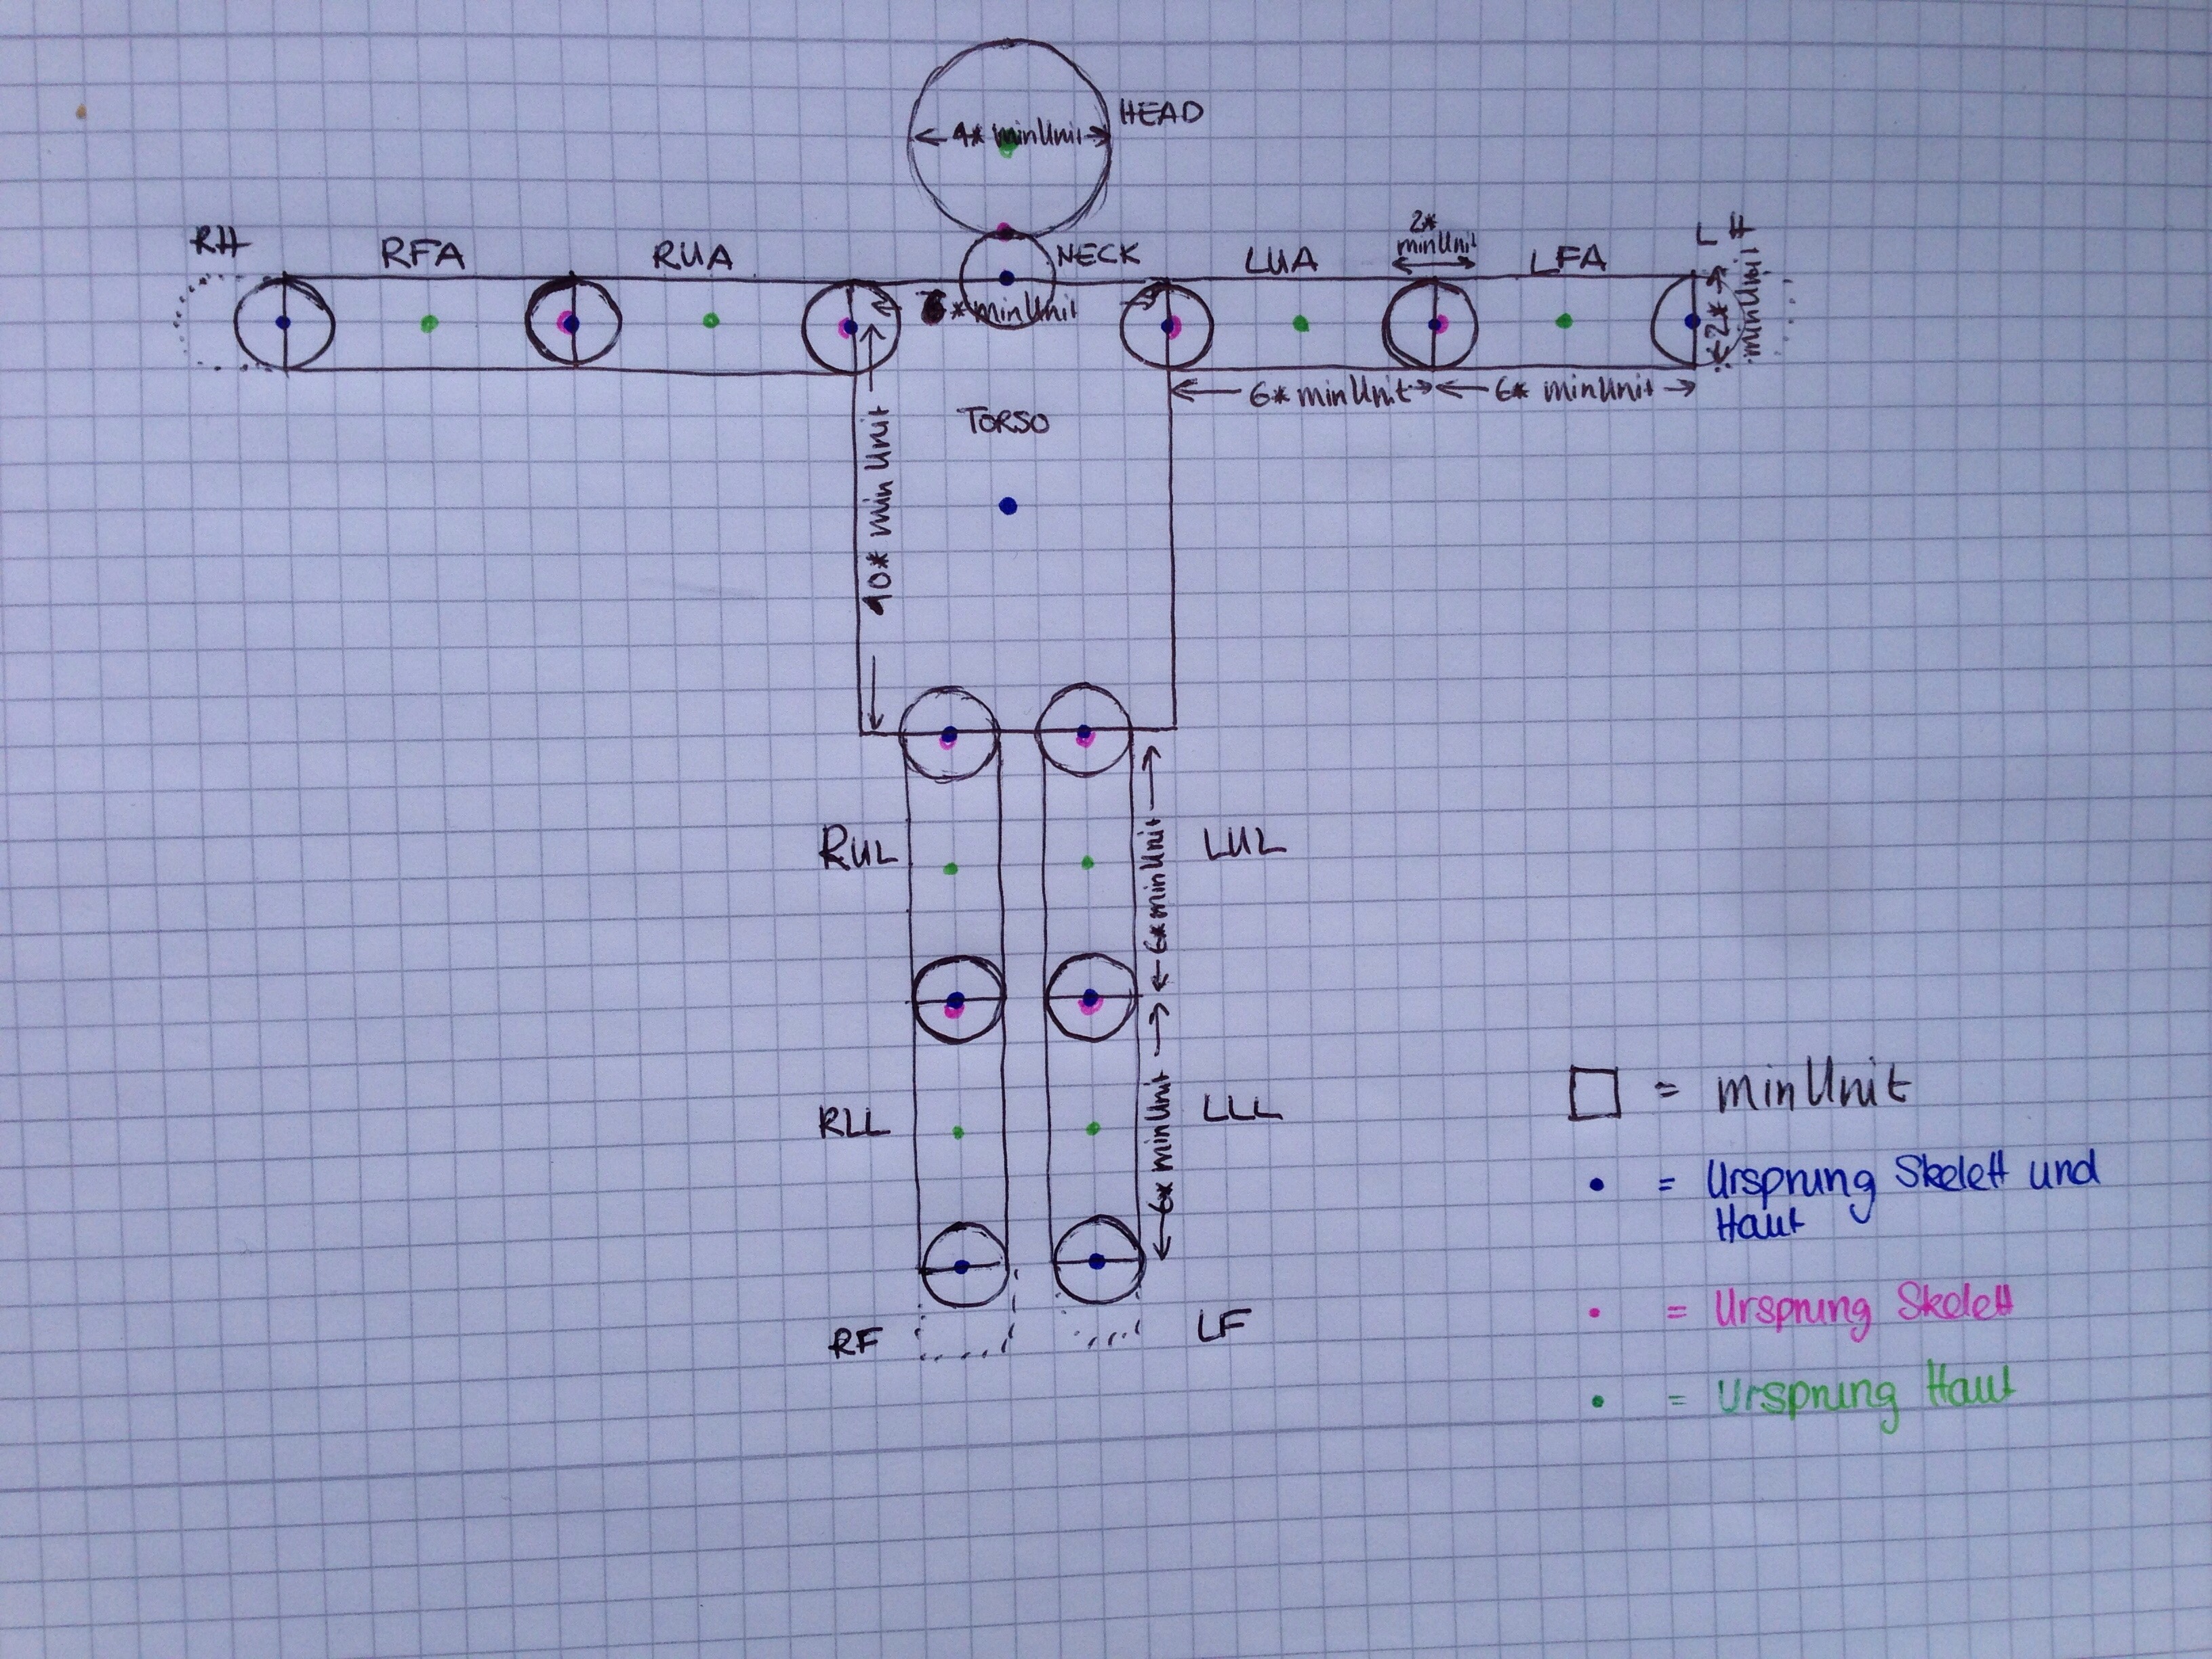 HEAD
4* minUnit
RH
RFA
RUA
NECK
LUA
2*
minUnit
LFA
LH
2*
minUnit
* minUnit
6* minUnit
6* minUnit
TORSO
10* min Unit
RUL
LUL
6* minUnit
RLL
LLL
6* minUnit
RF
LF
= minUnit
= Ursprung Skelett und
Haut
= Ursprung Skelett
= Ursprung Haut